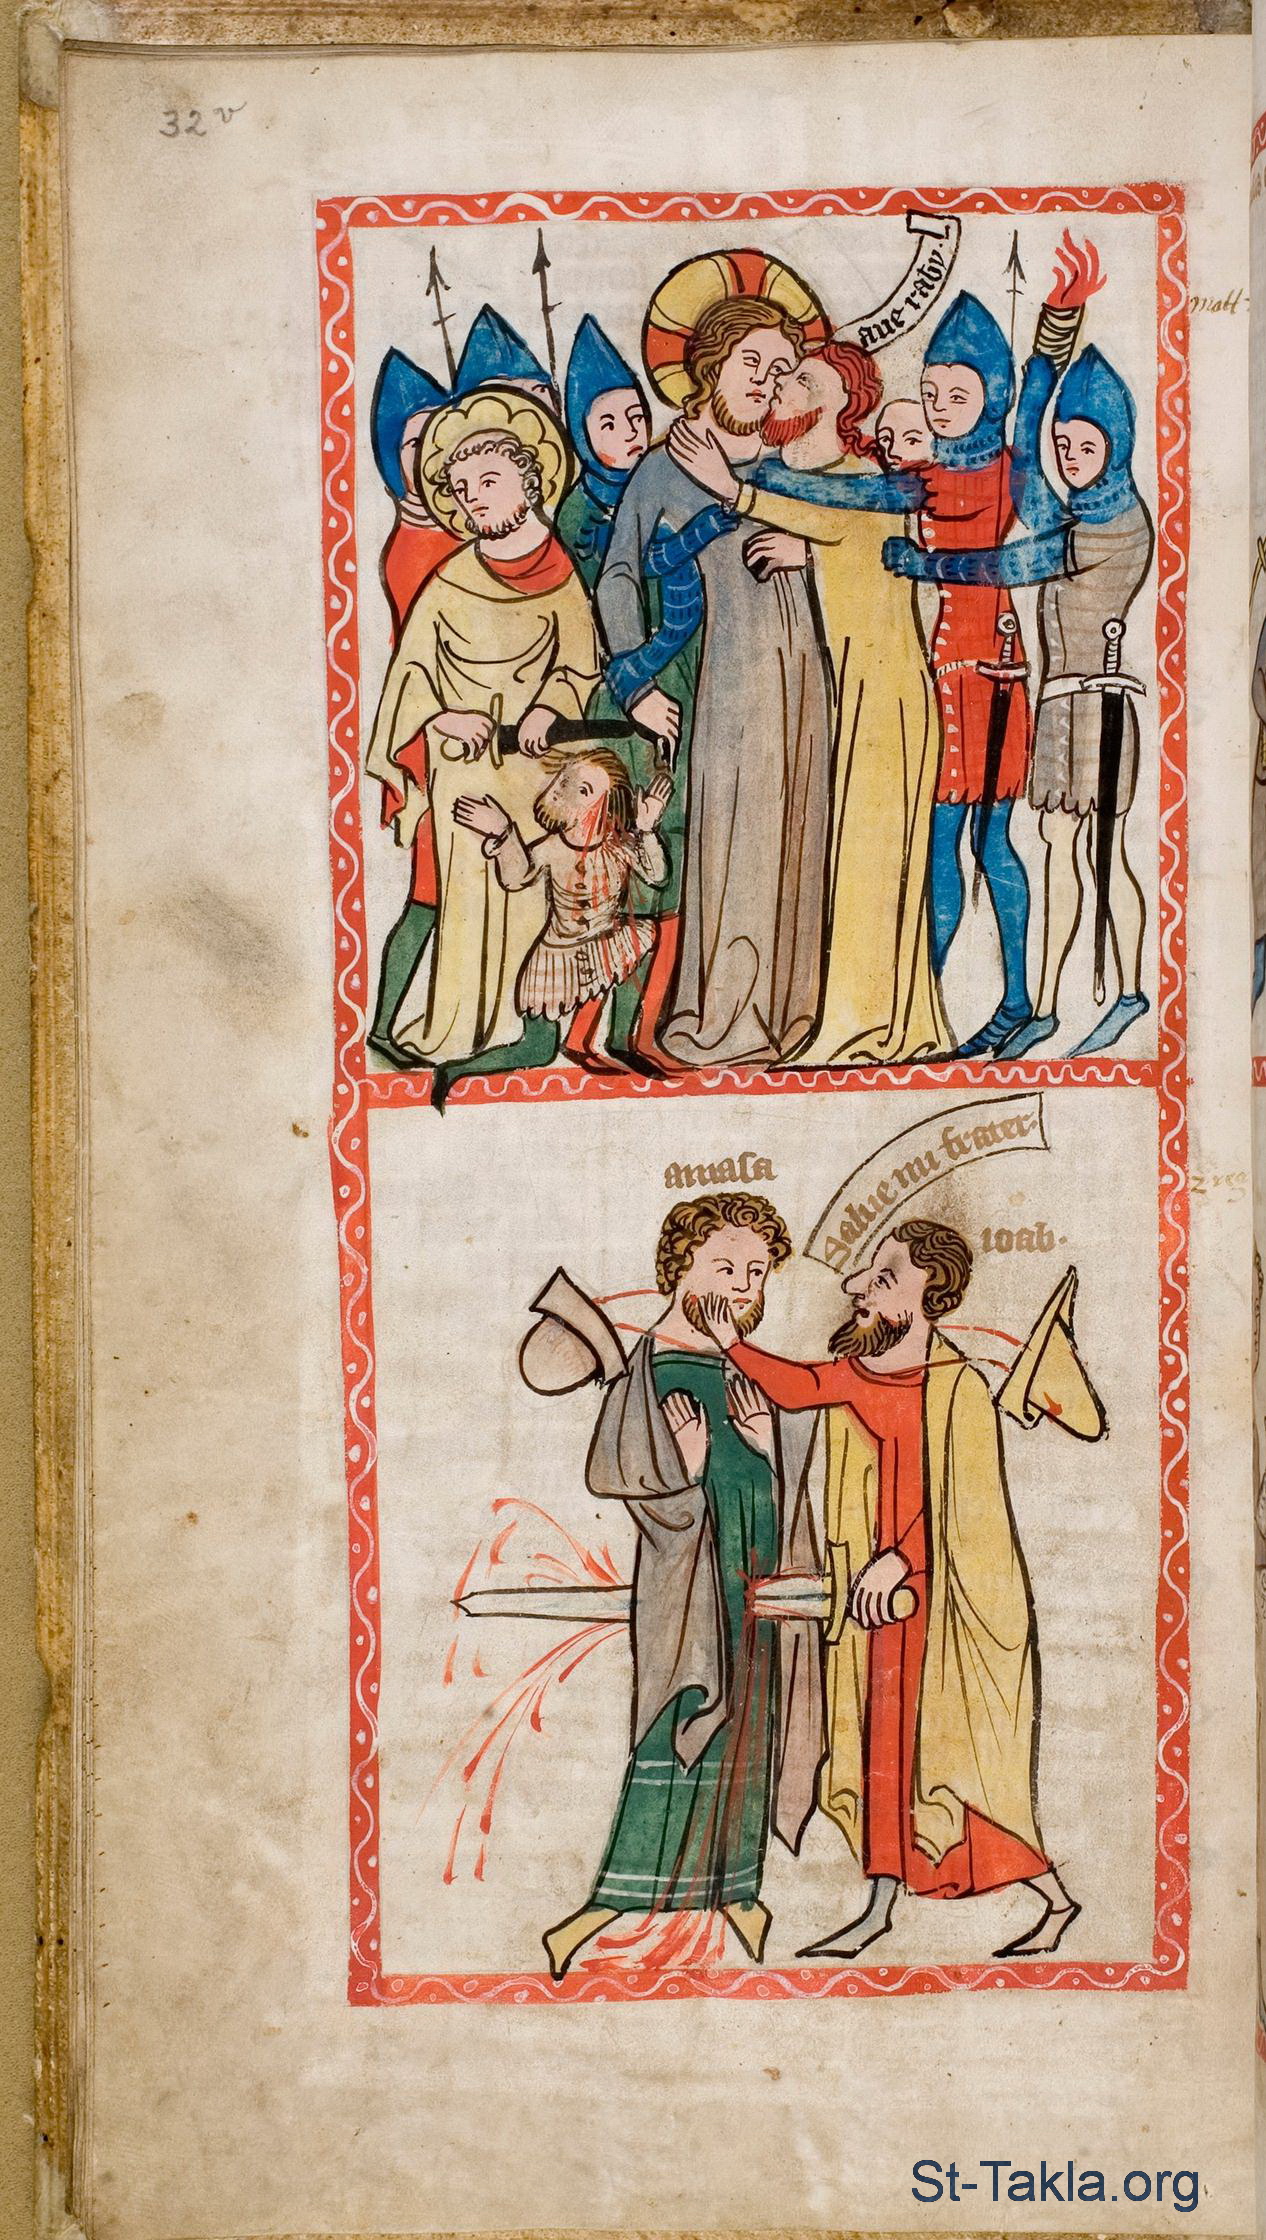 32 v
aue raby.
matt
amasa
Salue mi frater.
ioab.
2 reg
St-Takla.org